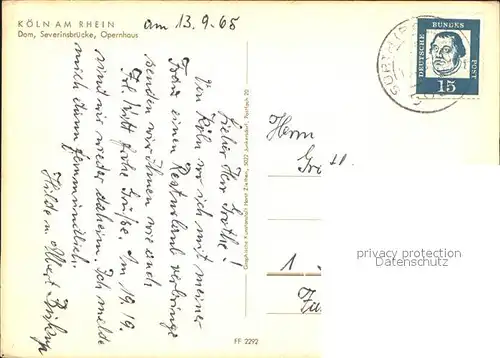 KÖLN AM RHEIN
Dom, Severinsbrücke, Opernhaus
am 13.9.65
Lieber Herr Grothe!
Von Köln wo ich mit meiner
Frau einen Resturlaub verbringe
senden wir Ihnen wie auch
Frl. Witt frohe Grüße. Am 19.19.
sind wir wieder daheim. Ich melde
mich dann fernmündlich.
Hilde u. Albert
Graphische Kunstanstalt Horst Ziethen, 5022 Junkersdorf, Postfach 20
FF 2292
DEUTSCHE BUNDES POST
15
Herrn
1
privacy protection
Datenschutz